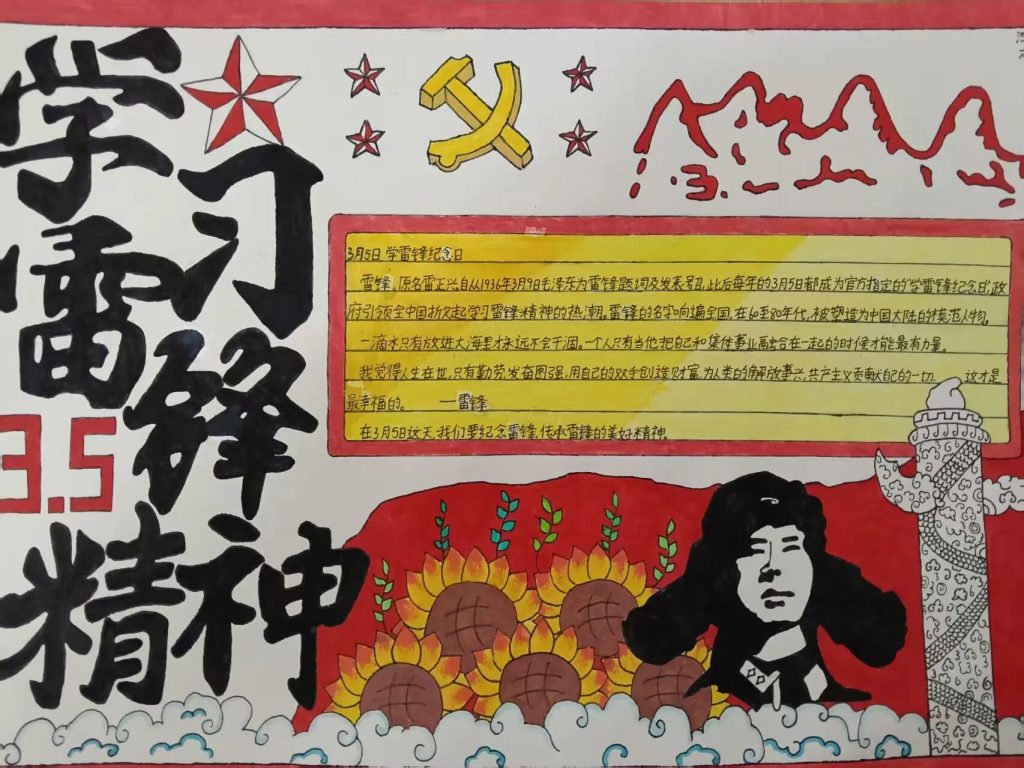 学习
雷锋
3.5
精神
3月5日 学雷锋纪念日
雷锋,原名雷正兴自从1936年3月9日毛泽东为雷锋题词及发表号召,此后每年的3月5日都成为官方指定的"学雷锋纪念日",政
府引领全中国掀起学习雷锋精神的热潮。雷锋的名字响遍全国,在60至80年代,被塑造为中国大陆的模范人物。
一滴水只有放进大海里才永远不会干涸。一个人只有当他把自己和集体事业融合在一起的时候才能最有力量。
我觉得人生在世,只有勤劳发奋图强,用自己的双手创造财富,为人类的解放事兴,共产主义贡献自己的一切. 这才是
最幸福的。 —雷锋
在3月5日这天,我们要纪念雷锋,传承雷锋的美好精神。